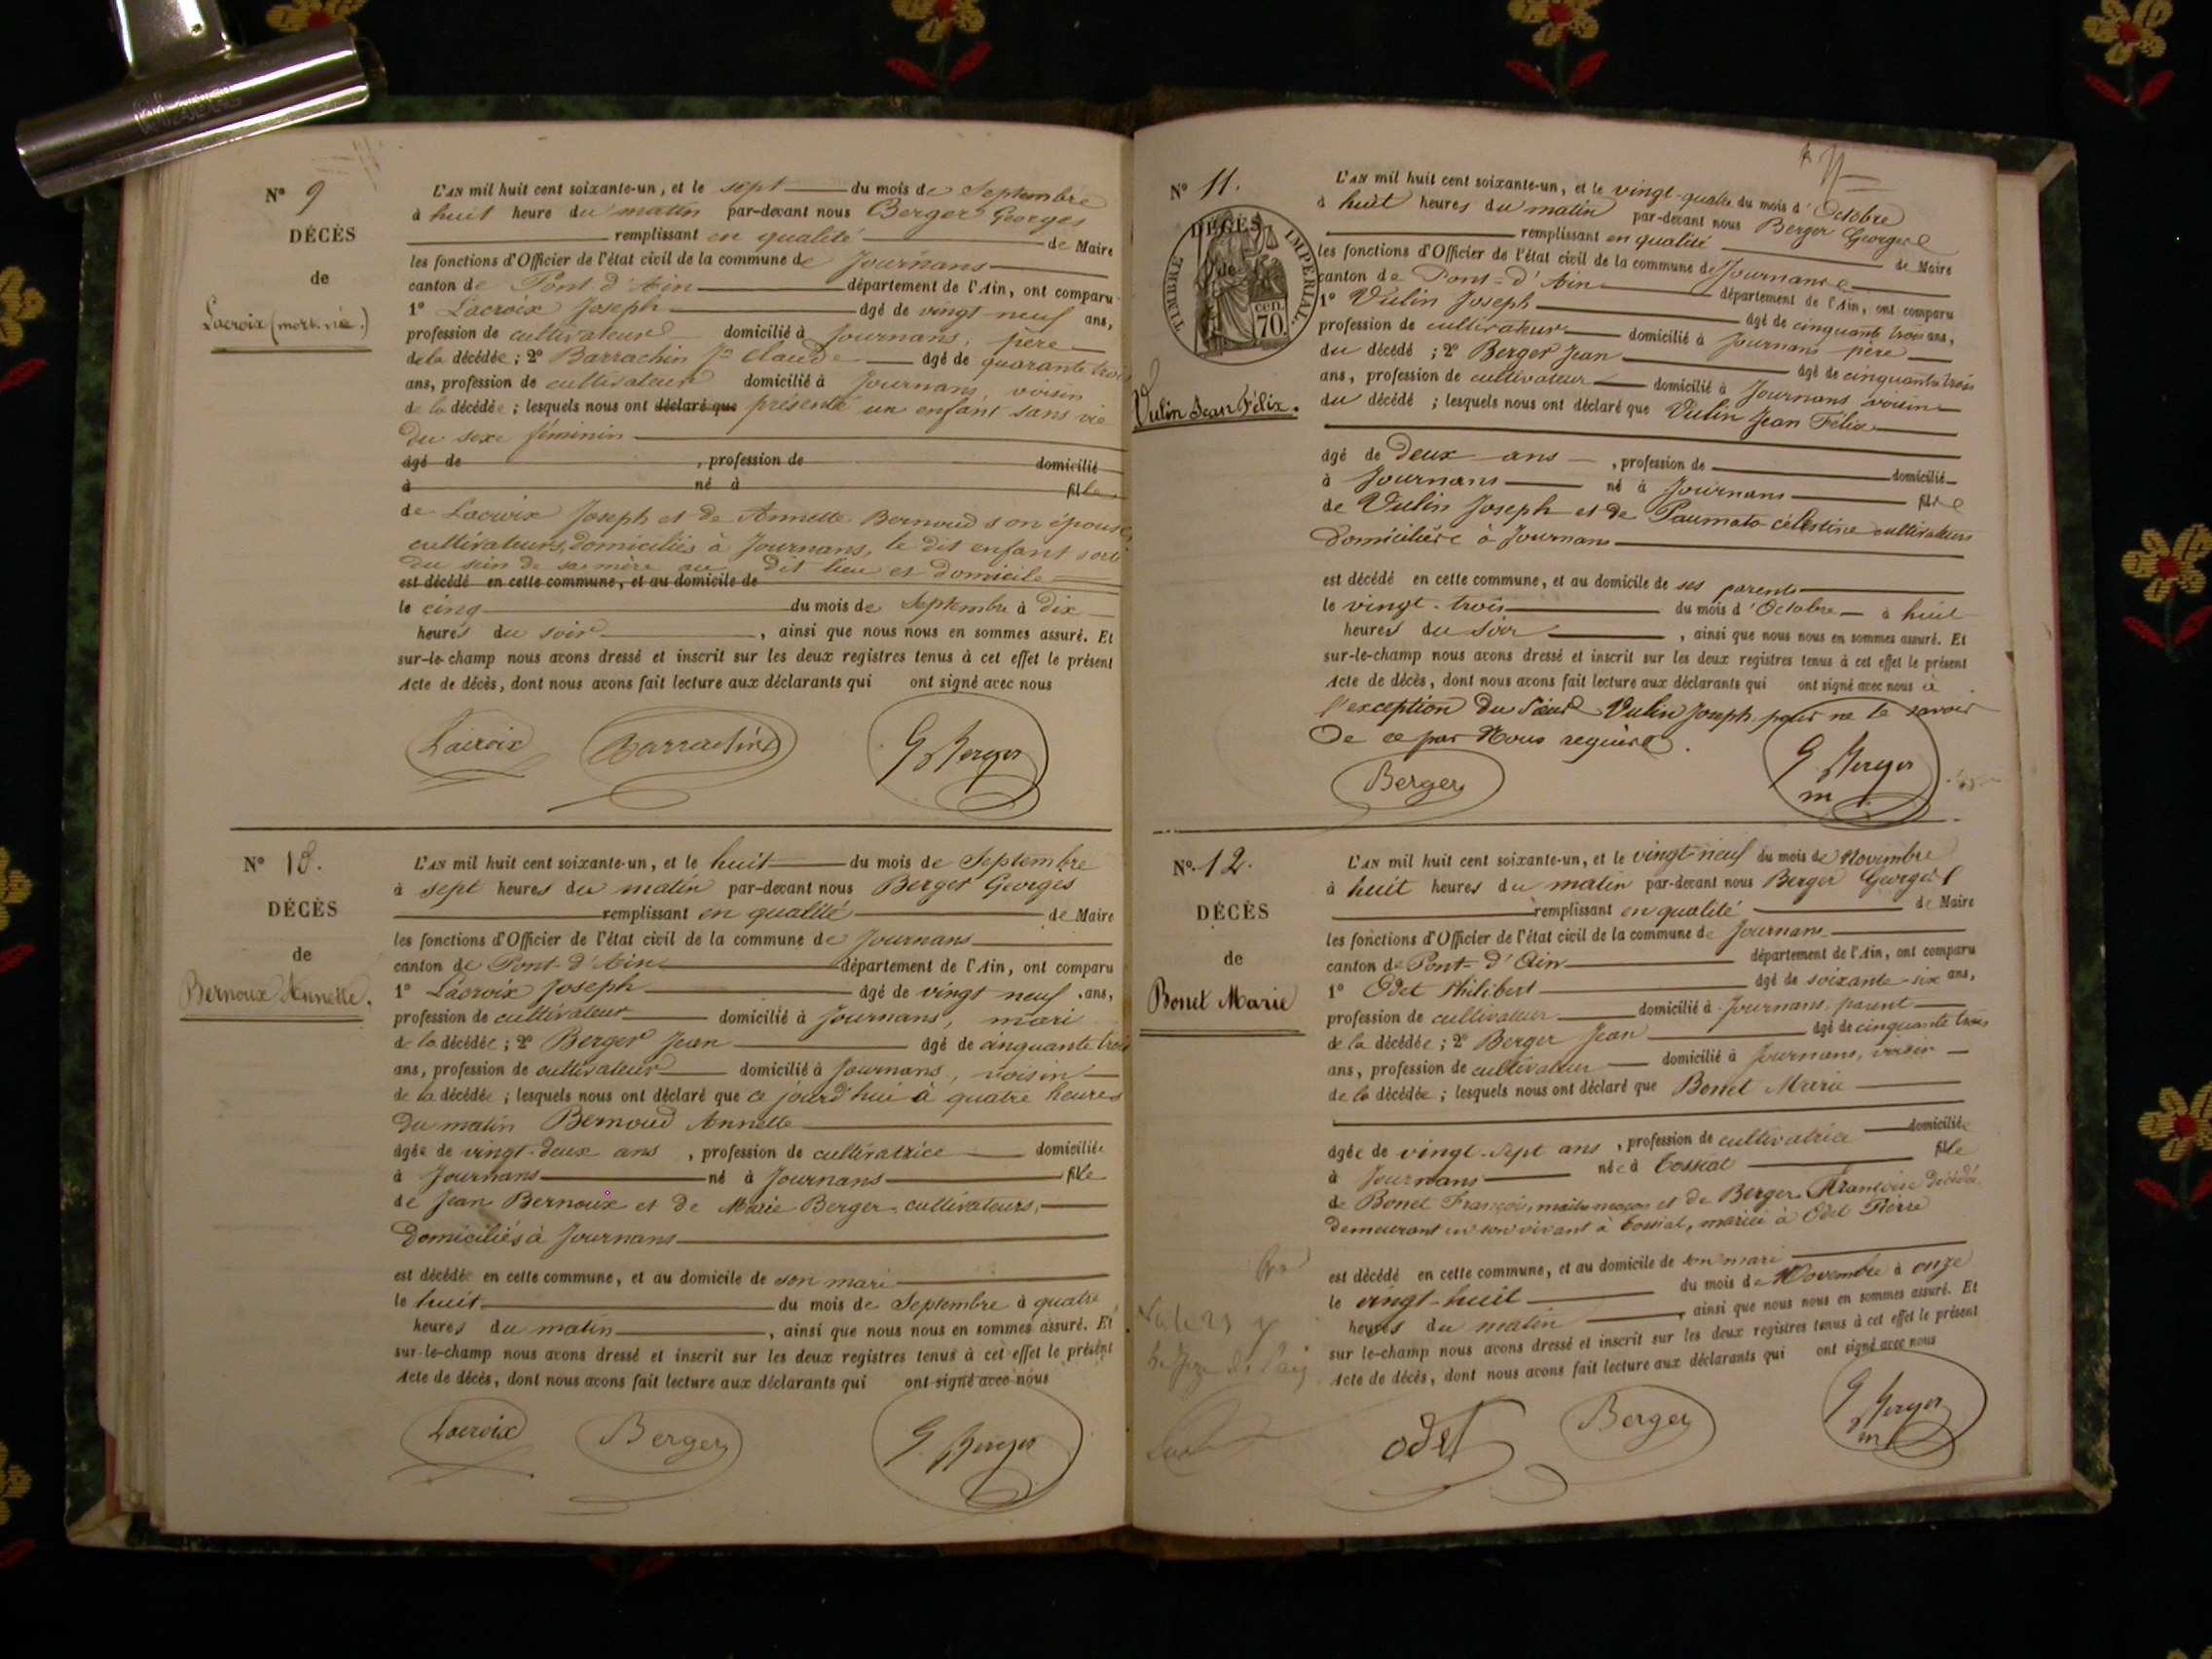 N° 9
DÉCÈS
de
Lacroix (mort. née.)
L'AN mil huit cent soixante-un, et le sept du mois de Septembre
à huit heure du matin par-devant nous Berger Georges
remplissant en qualité de Maire
les fonctions d'Officier de l'état civil de la commune de Journans
canton de Pont d'Ain département de l'Ain, ont comparu
1° Lacroix Joseph âgé de vingt neuf ans,
profession de cultivateur domicilié à Journans, père
de la décédée ; 2° Barrachin Claude âgé de quarante trois
ans, profession de cultivateur domicilié à Journans, voisin
de la décédée ; lesquels nous ont déclaré que présenté un enfant sans vie
du sexe féminin
âgé de , profession de domicilié
à né à fille
de Lacroix Joseph et de Annette Bernoud son épouse,
cultivateurs, domiciliés à Journans, le dit enfant sorti
du sein de sa mère au dit lieu et domicile
est décédé en cette commune, et au domicile de
le cinq du mois de Septembre à dix
heures du soir , ainsi que nous nous en sommes assuré. Et
sur-le-champ nous avons dressé et inscrit sur les deux registres tenus à cet effet le présent
Acte de décès, dont nous avons fait lecture aux déclarants qui ont signé avec nous
Lacroix Barrachin G Berger
N° 10.
DÉCÈS
de
Bernoux Annette.
L'AN mil huit cent soixante-un, et le huit du mois de Septembre
à sept heures du matin par-devant nous Berger Georges
remplissant en qualité de Maire
les fonctions d'Officier de l'état civil de la commune de Journans
canton de Pont-d'Ain département de l'Ain, ont comparu
1° Lacroix Joseph âgé de vingt neuf ans,
profession de cultivateur domicilié à Journans, mari
de la décédée ; 2° Berger Jean âgé de cinquante trois
ans, profession de cultivateur domicilié à Journans, voisin
de la décédée ; lesquels nous ont déclaré que ce jourd'hui à quatre heures
du matin Bernoud Annette
âgée de vingt-deux ans , profession de cultivatrice domiciliée
à Journans né à Journans fille
de Jean Bernoux et de Marie Berger, cultivateurs,
domiciliés à Journans
est décédée en cette commune, et au domicile de son mari
le huit du mois de Septembre à quatre
heures du matin , ainsi que nous nous en sommes assuré. Et
sur-le-champ nous avons dressé et inscrit sur les deux registres tenus à cet effet le présent
Acte de décès, dont nous avons fait lecture aux déclarants qui ont signé avec nous
Lacroix Berger G. Berger
N° 11.
DÉCÈS
de
TIMBRE IMPÉRIAL.
70 cen.
Vulin Jean Félix.
L'AN mil huit cent soixante-un, et le vingt-quatre du mois d'Octobre
à huit heures du matin par-devant nous Berger Georges
remplissant en qualité de Maire
les fonctions d'Officier de l'état civil de la commune de Journans
canton de Pont-d'Ain département de l'Ain, ont comparu
1° Vulin Joseph âgé de cinquante trois ans,
profession de cultivateur domicilié à Journans père
du décédé ; 2° Berger Jean âgé de cinquante trois
ans, profession de cultivateur domicilié à Journans voisin
du décédé ; lesquels nous ont déclaré que Vulin Jean Félix
âgé de deux ans , profession de domicilié
à Journans né à Journans fils
de Vulin Joseph et de célestine cultivateurs
domiciliés à Journans
est décédé en cette commune, et au domicile de ses parents
le vingt-trois du mois d'Octobre à huit
heures du soir , ainsi que nous nous en sommes assuré. Et
sur-le-champ nous avons dressé et inscrit sur les deux registres tenus à cet effet le présent
Acte de décès, dont nous avons fait lecture aux déclarants qui ont signé avec nous à
l'exception du Sieur Vulin Joseph, pour ne le savoir
De ce par Nous requis.
Berger G Berger
m
N° 12.
DÉCÈS
de
Bonet Marie
L'AN mil huit cent soixante-un, et le vingt-neuf du mois de Novembre
à huit heures du matin par-devant nous Berger Georges
remplissant en qualité de Maire
les fonctions d'Officier de l'état civil de la commune de Journans
canton de Pont-d'Ain département de l'Ain, ont comparu
1° Odet Philibert âgé de soixante-six ans,
profession de cultivateur domicilié à Journans, parent
de la décédée ; 2° Berger Jean âgé de cinquante trois
ans, profession de cultivateur domicilié à Journans, voisin
de la décédée ; lesquels nous ont déclaré que Bonet Marie
âgée de vingt-sept ans , profession de cultivatrice domiciliée
à Journans née à Tossiat fille
de Bonet François, maître maçon et de Berger Françoise décédée
demeurant en son vivant à Tossiat, mariée à Odet Pierre
est décédé en cette commune, et au domicile de son mari
le vingt-huit du mois de Novembre à onze
heures du matin , ainsi que nous nous en sommes assuré. Et
sur le-champ nous avons dressé et inscrit sur les deux registres tenus à cet effet le présent
Acte de décès, dont nous avons fait lecture aux déclarants qui ont signé avec nous
odet Berger G Berger
m